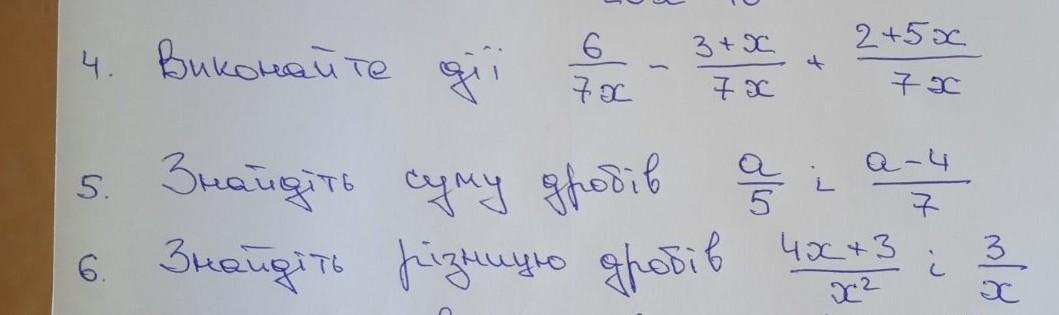 4. Виконайте дії 6/7x - 3+x/7x + 2+5x/7x
5. Знайдіть суму дробів a/5 і a-4/7
6. Знайдіть різницю дробів 4x+3/x² і 3/x